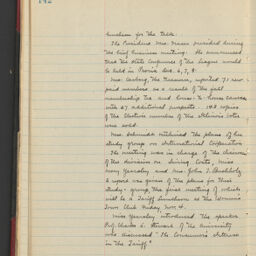 142
luncheon for the talk.
The President Mrs. Frazer presided during
the brief business meeting. She announced
that the State Conference of the League would
be held in Peoria Dec. 6, 7, 8.
Mrs. the Treasurer, reported 71 new
paid members as a result of the fall
membership tea and house-to-house canvass
with 27 additional prospects. 148 copies
of the election number of the Illinois Voter
was sold.
Mrs. Schmidt outlined the plans of her
study group on International Cooperation
The meeting was in charge of the chairmen
of the division on Living Costs, Miss
Mary Yearsley and Mrs. John J.
A report was given of the plans for this
study-group, the first meeting of which
will be a Tariff luncheon at the Woman's
Town Club Friday Nov. 4.
Miss Yearsley introduced the speaker
Prof. Charles L. Stewart of the University
who discussed "The Consumer's Interest
in the Tariff."